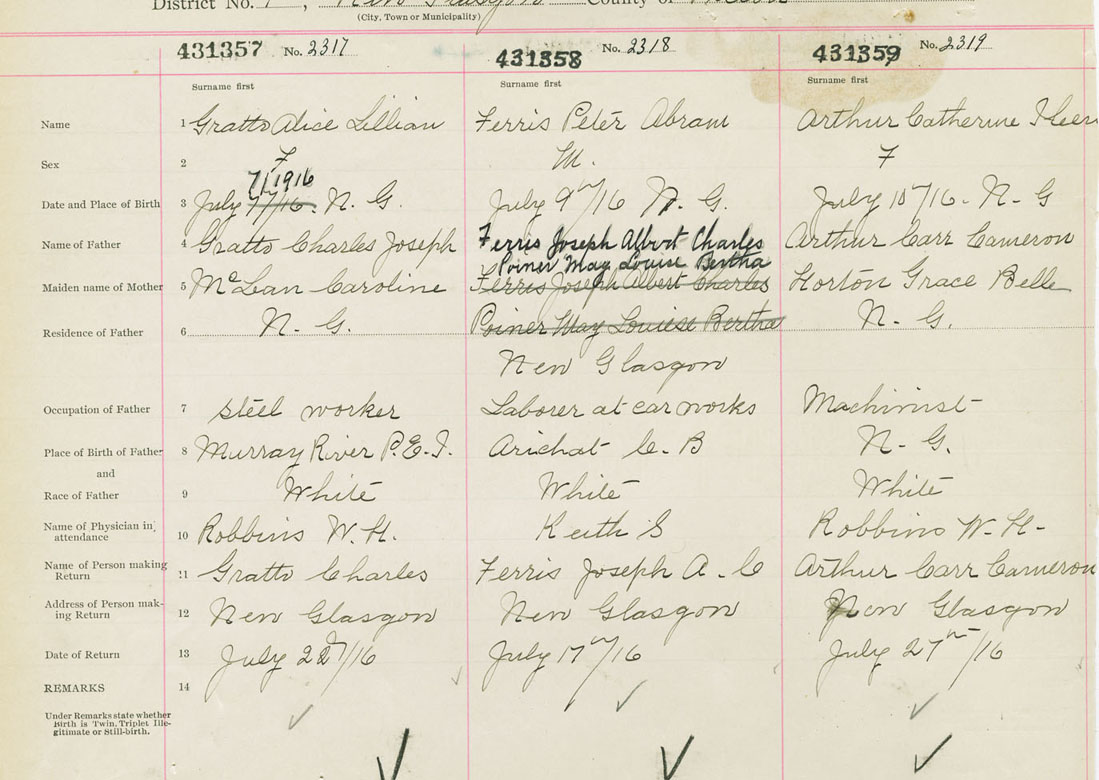 District No. 7, New Glasgow County of Pictou
(City, Town or Municipality)
431357 No. 2317 431358 No. 2318 431359 No. 2319
Surname first Surname first Surname first
Name 1 Gratto Alice Lillian Ferris Peter Abram Arthur Catherine
Sex 2 F M. F
7/1916
Date and Place of Birth 3 July 7/16. N. G. July 9th/16 N. G. July 10/16. N. G
Name of Father 4 Gratto Charles Joseph Ferris Joseph Albert Charles Arthur Carr Cameron
Poiner May Louise Bertha
Maiden name of Mother 5 McLean Caroline Ferris Joseph Albert Charles Horton Grace Belle
Residence of Father 6 N. G. Poiner May Louise Bertha N. G.
New Glasgow
Occupation of Father 7 steel worker Laborer at car works Machinist
Place of Birth of Father 8 Murray River P.E.I. Arichat C. B N. G.
and
Race of Father 9 White White White
Name of Physician in attendance 10 Robbins W. H. Keith S Robbins W. H.
Name of Person making Return 11 Gratto Charles Ferris Joseph A. C Arthur Carr Cameron
Address of Person mak-
ing Return 12 New Glasgow New Glasgow New Glasgow
Date of Return 13 July /16 July 17th/16 July 27th/16
REMARKS 14
Under Remarks state whether
Birth is Twin, Triplet Ille-
gitimate or Still-birth.